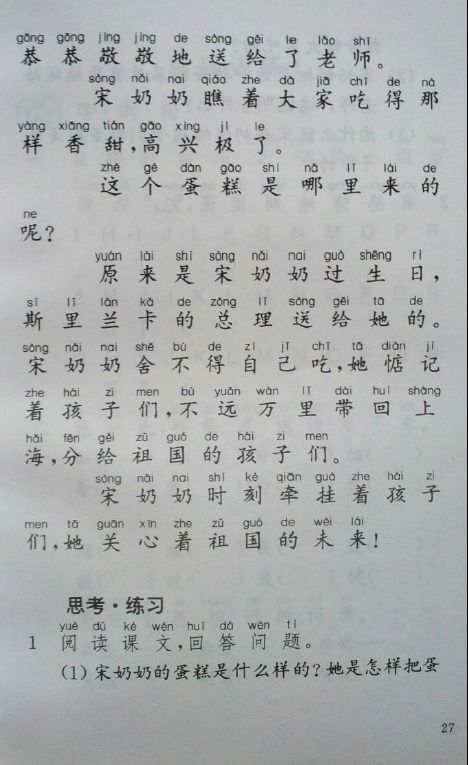 gōng gōng jìng jìng de sòng gěi le lǎo shī
恭恭敬敬地送给了老师。
sòng nǎi nai qiáo zhe dà jiā chī de nà
宋奶奶瞧着大家吃得那
yàng xiāng tián gāo xìng jí le
样香甜,高兴极了。
zhè gè dàn gāo shì nǎ lǐ lái de
这个蛋糕是哪里来的
ne
呢?
yuán lái shì sòng nǎi nai guò shēng rì
原来是宋奶奶过生日,
sī lǐ lán kǎ de zǒng lǐ sòng gěi tā de
斯里兰卡的总理送给她的。
sòng nǎi nai shě bù de zì jǐ chī tā diàn jì
宋奶奶舍不得自己吃,她惦记
zhe hái zi men bù yuǎn wàn lǐ dài huí shàng
着孩子们,不远万里带回上
hǎi fēn gěi zǔ guó de hái zi men
海,分给祖国的孩子们。
sòng nǎi nai shí kè qiān guà zhe hái zi
宋奶奶时刻牵挂着孩子
men tā guān xīn zhe zǔ guó de wèi lái
们,她关心着祖国的未来!
思考·练习
yuè dú kè wén huí dá wèn tí
1 阅读课文,回答问题。
(1)宋奶奶的蛋糕是什么样的?她是怎样把蛋
27